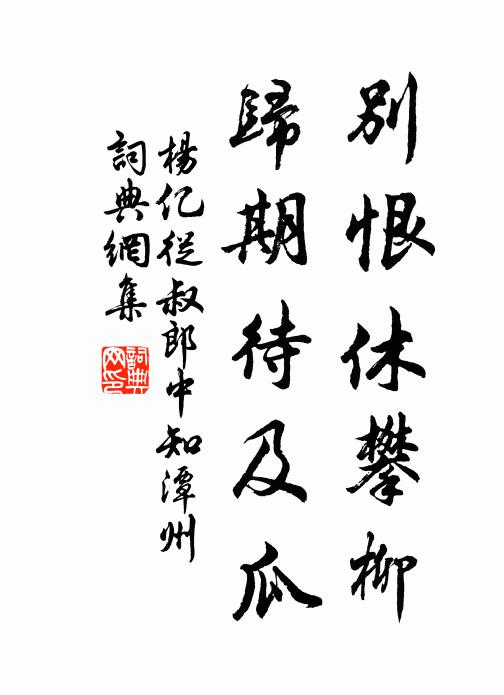 別恨休攀柳
歸期待及瓜
楊亿從叔郎中知潭州
詞典網集
詞典网印